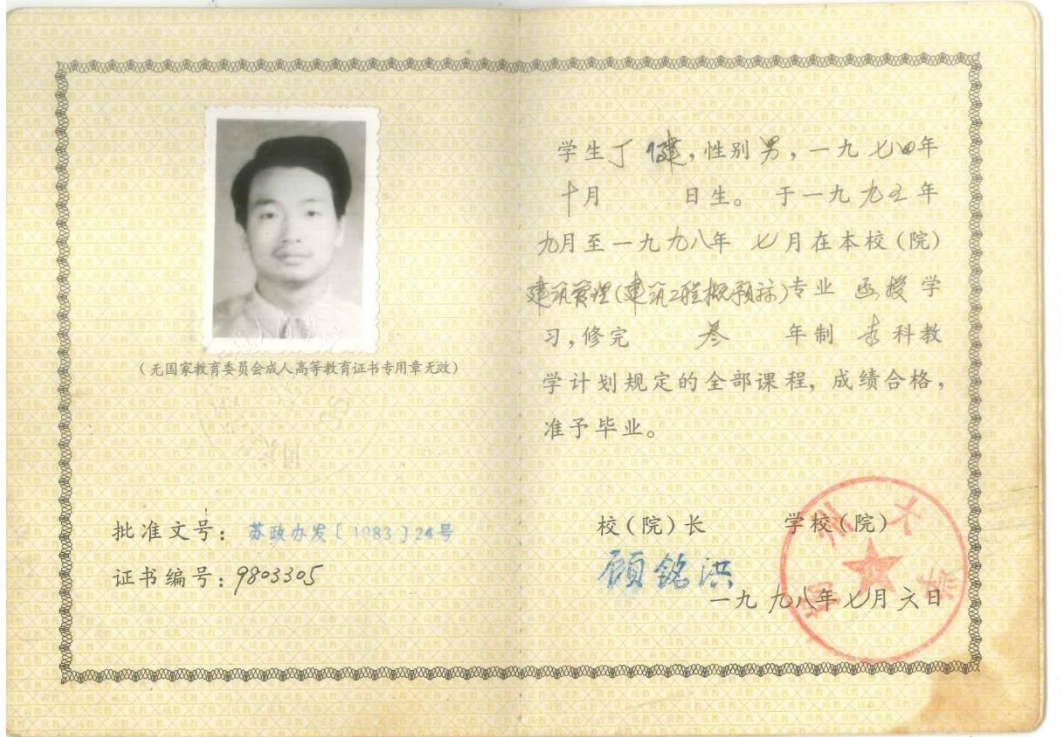 (无国家教育委员会成人高等教育证书专用章无效)
批准文号：苏政办发〔1983〕24号
证书编号：9803305
学生丁健，性别男，一九七四年
十月 日生。于一九九五年
九月至一九九八年 七月在本校(院)
建筑管理(建筑工程概预标)专业 函授学
习，修完 叁 年制 专科教
学计划规定的全部课程，成绩合格，
准予毕业。
校(院)长 学校(院)
顾铭洪
一九九八年七月六日
州大学